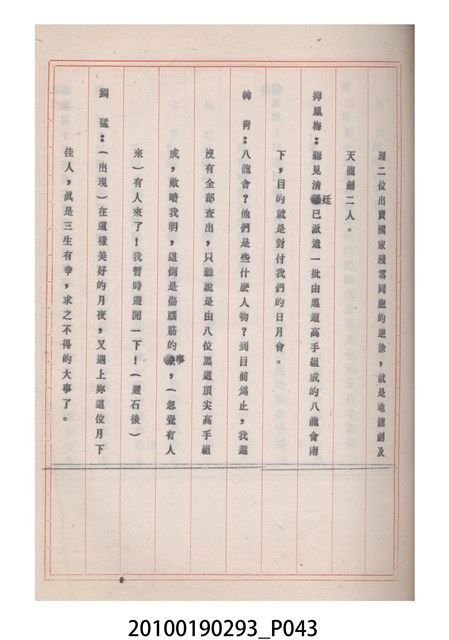 理二位出賣國家殘害同胞的逆徒，就是地龍劍及
天龍劍二人。
柳鳳梅：聽見清廷已派遣一批由黑道高手組成的八龍會南
下，目的就是對付我們的日月會。
韓青：八龍會？他們是些什麼人物？到目前為止，我還
沒有全部查出，只聽說是由八位黑道頂尖高手組
成，敵暗我明，這倒是傷腦筋的事，（忽覺有人
來）有人來了！我暫時避開一下！（避石後）
猛：（出現）在這樣美好的月夜，又遇上妳這位月下
佳人，真是三生有幸，求之不得的大事了。
20100190293_P043